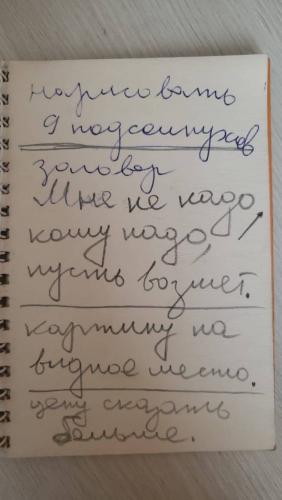 нарисовать
9 подсолнухов
заговор
Мне не надо
кому надо,
пусть возмет.
картину на
видное место.
цену сказать
больше.